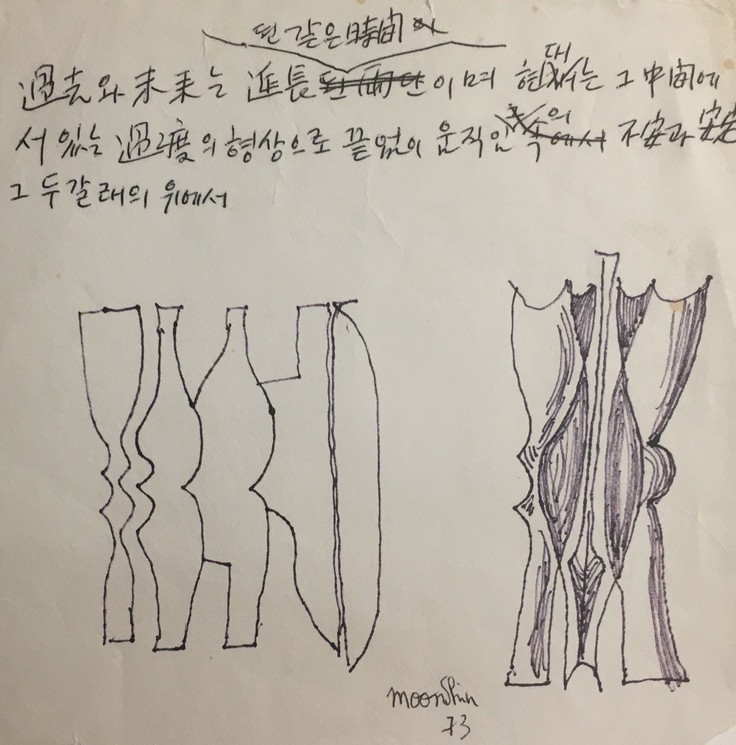 된 같은 時間
過去와 未來는 延長 이며 현대는 그 中間에
서 있는 過度의 형상으로 끝없이 움직인 속의 不安과 安定
그 두갈래의 위에서
moonshin
73